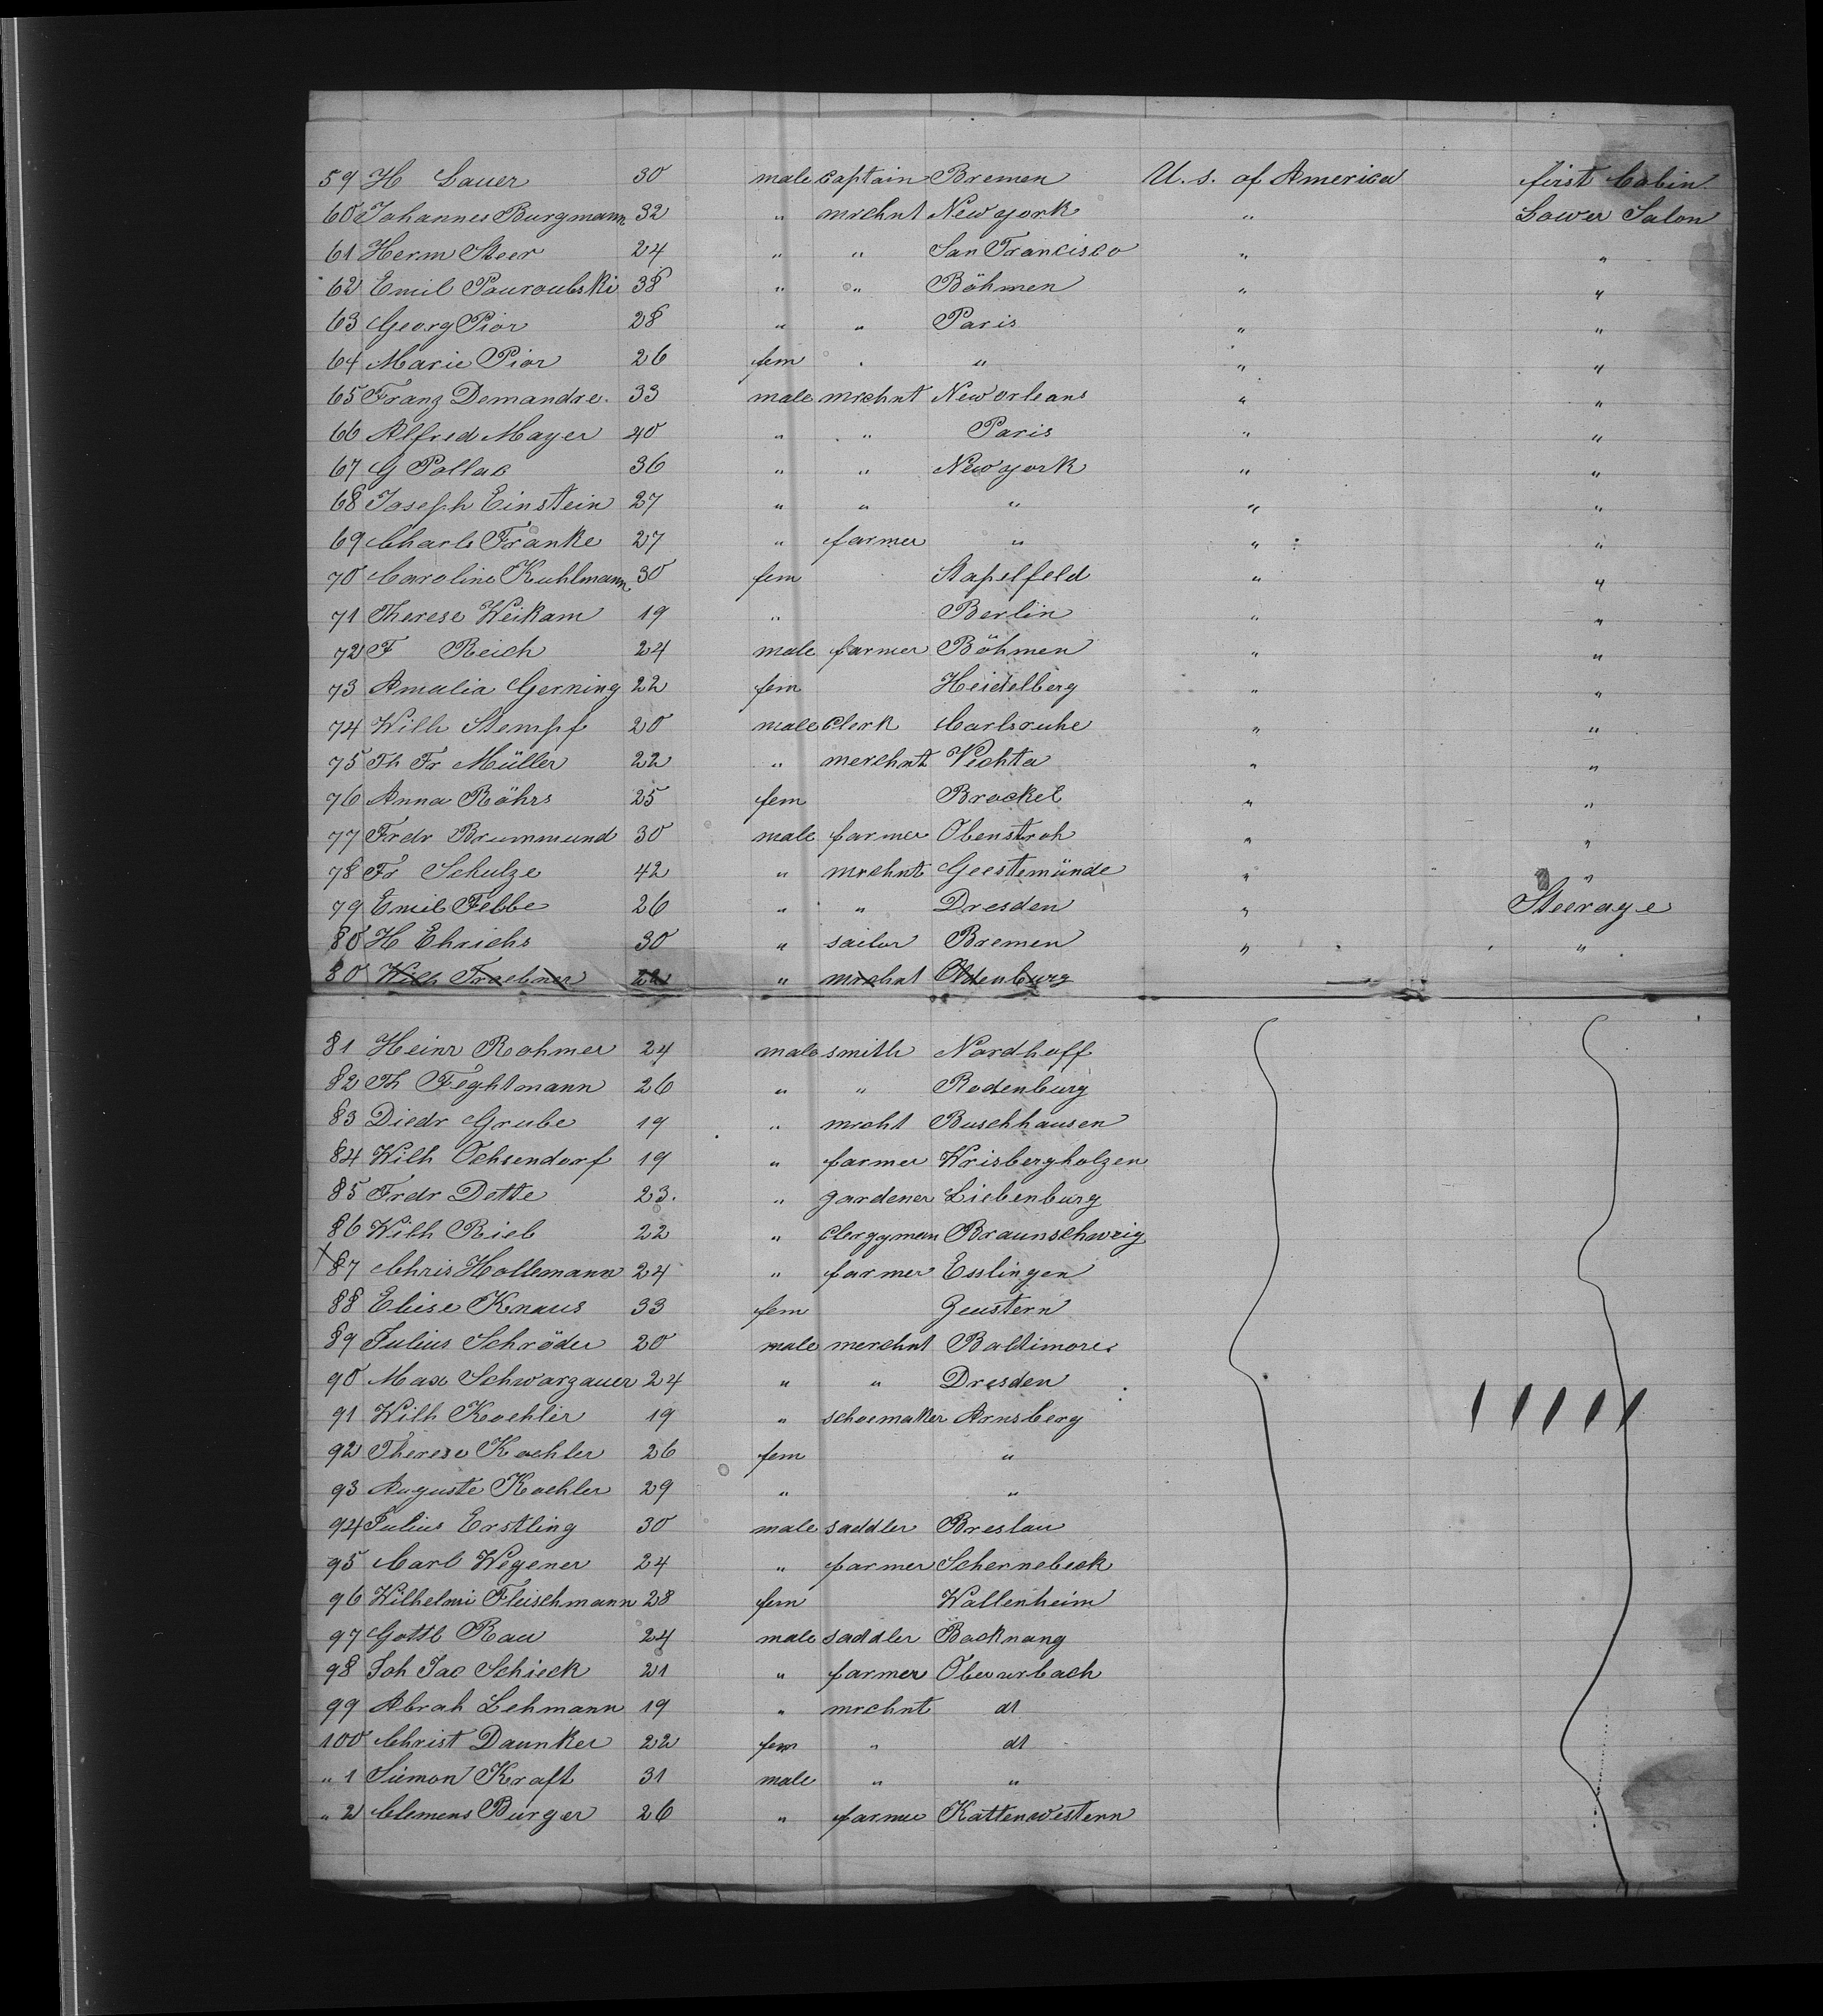 59 H Sauer 30 male Captain Bremen U. S. of America first Cabin
60 Johannes Burgmann 32 " mrchnt New york " Lower Salon
61 Herm Steer 24 " " San Francisco " "
62 Emil Pauroubski 38 " " Böhmen " "
63 Georg Pior 28 " " Paris " "
64 Marie Pior 26 fem " " "
65 Franz Demandre 33 male mrchnt New orleans " "
66 Alfred Mayer 40 " " Paris " "
67 G Pollac 36 " " New york " "
68 Joseph Einstein 27 " " " " "
69 Charls Franke 27 " farmer " " "
70 Caroline Kuhlmann 30 fem Stapelfeld " "
71 Therese Weikam 19 " Berlin " "
72 F Reich 24 male farmer Böhmen " "
73 Amalia Gerning 22 fem Heidelberg " "
74 Wilh Stempf 20 male Clerk Carlsruhe " "
75 Th Fr Müller 22 " merchnt Vechta " "
76 Anna Röhrs 25 fem Brockel " "
77 Fredr Brummund 30 male farmer Obenstroh " "
78 Fr Schulze 42 " mrchnt Geestemünde " "
79 Emil Felbe 26 " " Dresden " Steerage
80 H Ehrichs 30 " sailor Bremen " "
80 Wilh Traebner 22 " mrchnt Oldenburg
81 Heinr Rohmer 24 male smith Nordhoff
82 Th Feghtmann 26 " " Rodenburg
83 Diedr Grube 19 " mrcht Buschhausen
84 Wilh Ochsendorf 19 " farmer Wrisbergholzen
85 Fredr Dette 23. " gardener Liebenburg
86 Wilh Rieb 22 " Clergyman Braunschweig
87 Chris Hollemann 24 " farmer Esslingen
88 Elise Knaus 33 fem Zeustern
89 Julius Schröder 20 male merchnt Baltimore
90 Max Schwarzauer 24 " " Dresden
91 Wilh Koehler 19 " schoemaker Arnsberg
92 Therese Koehler 26 fem "
93 Auguste Koehler 29 " "
94 Julius Erstling 30 male saddler Breslau
95 Carl Wegener 24 " farmer Schernebeck
96 Wilhelmi Fleischmann 28 fem Wallenheim
97 Gottl Rau 24 male saddler Backnang
98 Joh Jac Schieck 21 " farmer Oberurbach
99 Abrah Lehmann 19 " mrchnt dt
100 Christ Daunker 22 fem " dt
" 1 Simon Kraft 31 male " "
" 2 Clemens Burger 26 " farmer Kattenwestern